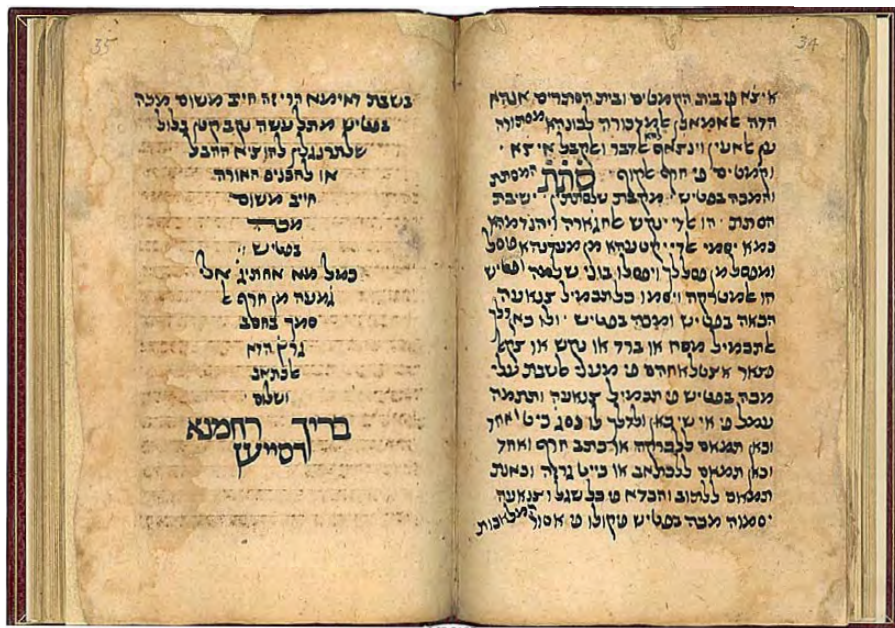 34
איצא פי בית הקמטים ובית הסתרים אנהא
הדה אלאמאכן אלמדכורה לכונהא מסתורה
ען אלאעין וינצאם אלדבר ואלקבל איצא
וקמטים פי חרף אלקוף סתת המסתת
והמכה בפטיש מקבת שלסתתין ישיבת
הסתת הו אלדי ינקש אלחגארה ויהנדמהא
כמא יסמי אלדי יקטעהא מן מעדנהא פוסל
ומפסל מן פסל לך ויפסלו בוני שלמה ופטיש
הו אלמטרקה ויסמו כל תכמיל צנאעה
הכאה בפטיש ומכה בפטיש ולו כאן דלך
אלתכמיל מסח או ברד או נקש או צקל
פצאר אצטלאחהם פי מעני אלשבת עלי
מכה בפטיש פי תכמיל צנאעה ותתמה
עמל פי אי שי כאן ולדלך לו נסג כיט ואחד
וכאן תמאם ללכרקה או כתב חרף ואחד
וכאן תמאם ללכתאב או כייט גרזה וכאנת
תמאם ללתוב והכדא פי כל שגל וצנאעה
יסמוה מכה בפטיש פקולו פי אסור המלאכות
35
בשבת ואימא הרי זה חייב משום מכה
בפטיש מתל עשה נקב קטן בלול
שלתרנגלין להוציא ההבל
או להכניס האורה
חייב משום
מכה
בפטיש
כמל מא אחתיג אלי
גמעה מן חרף אל
סמך בחסב
גרץ הדא
אלכתאב
ושלום
בריך רחמנא
דסייען